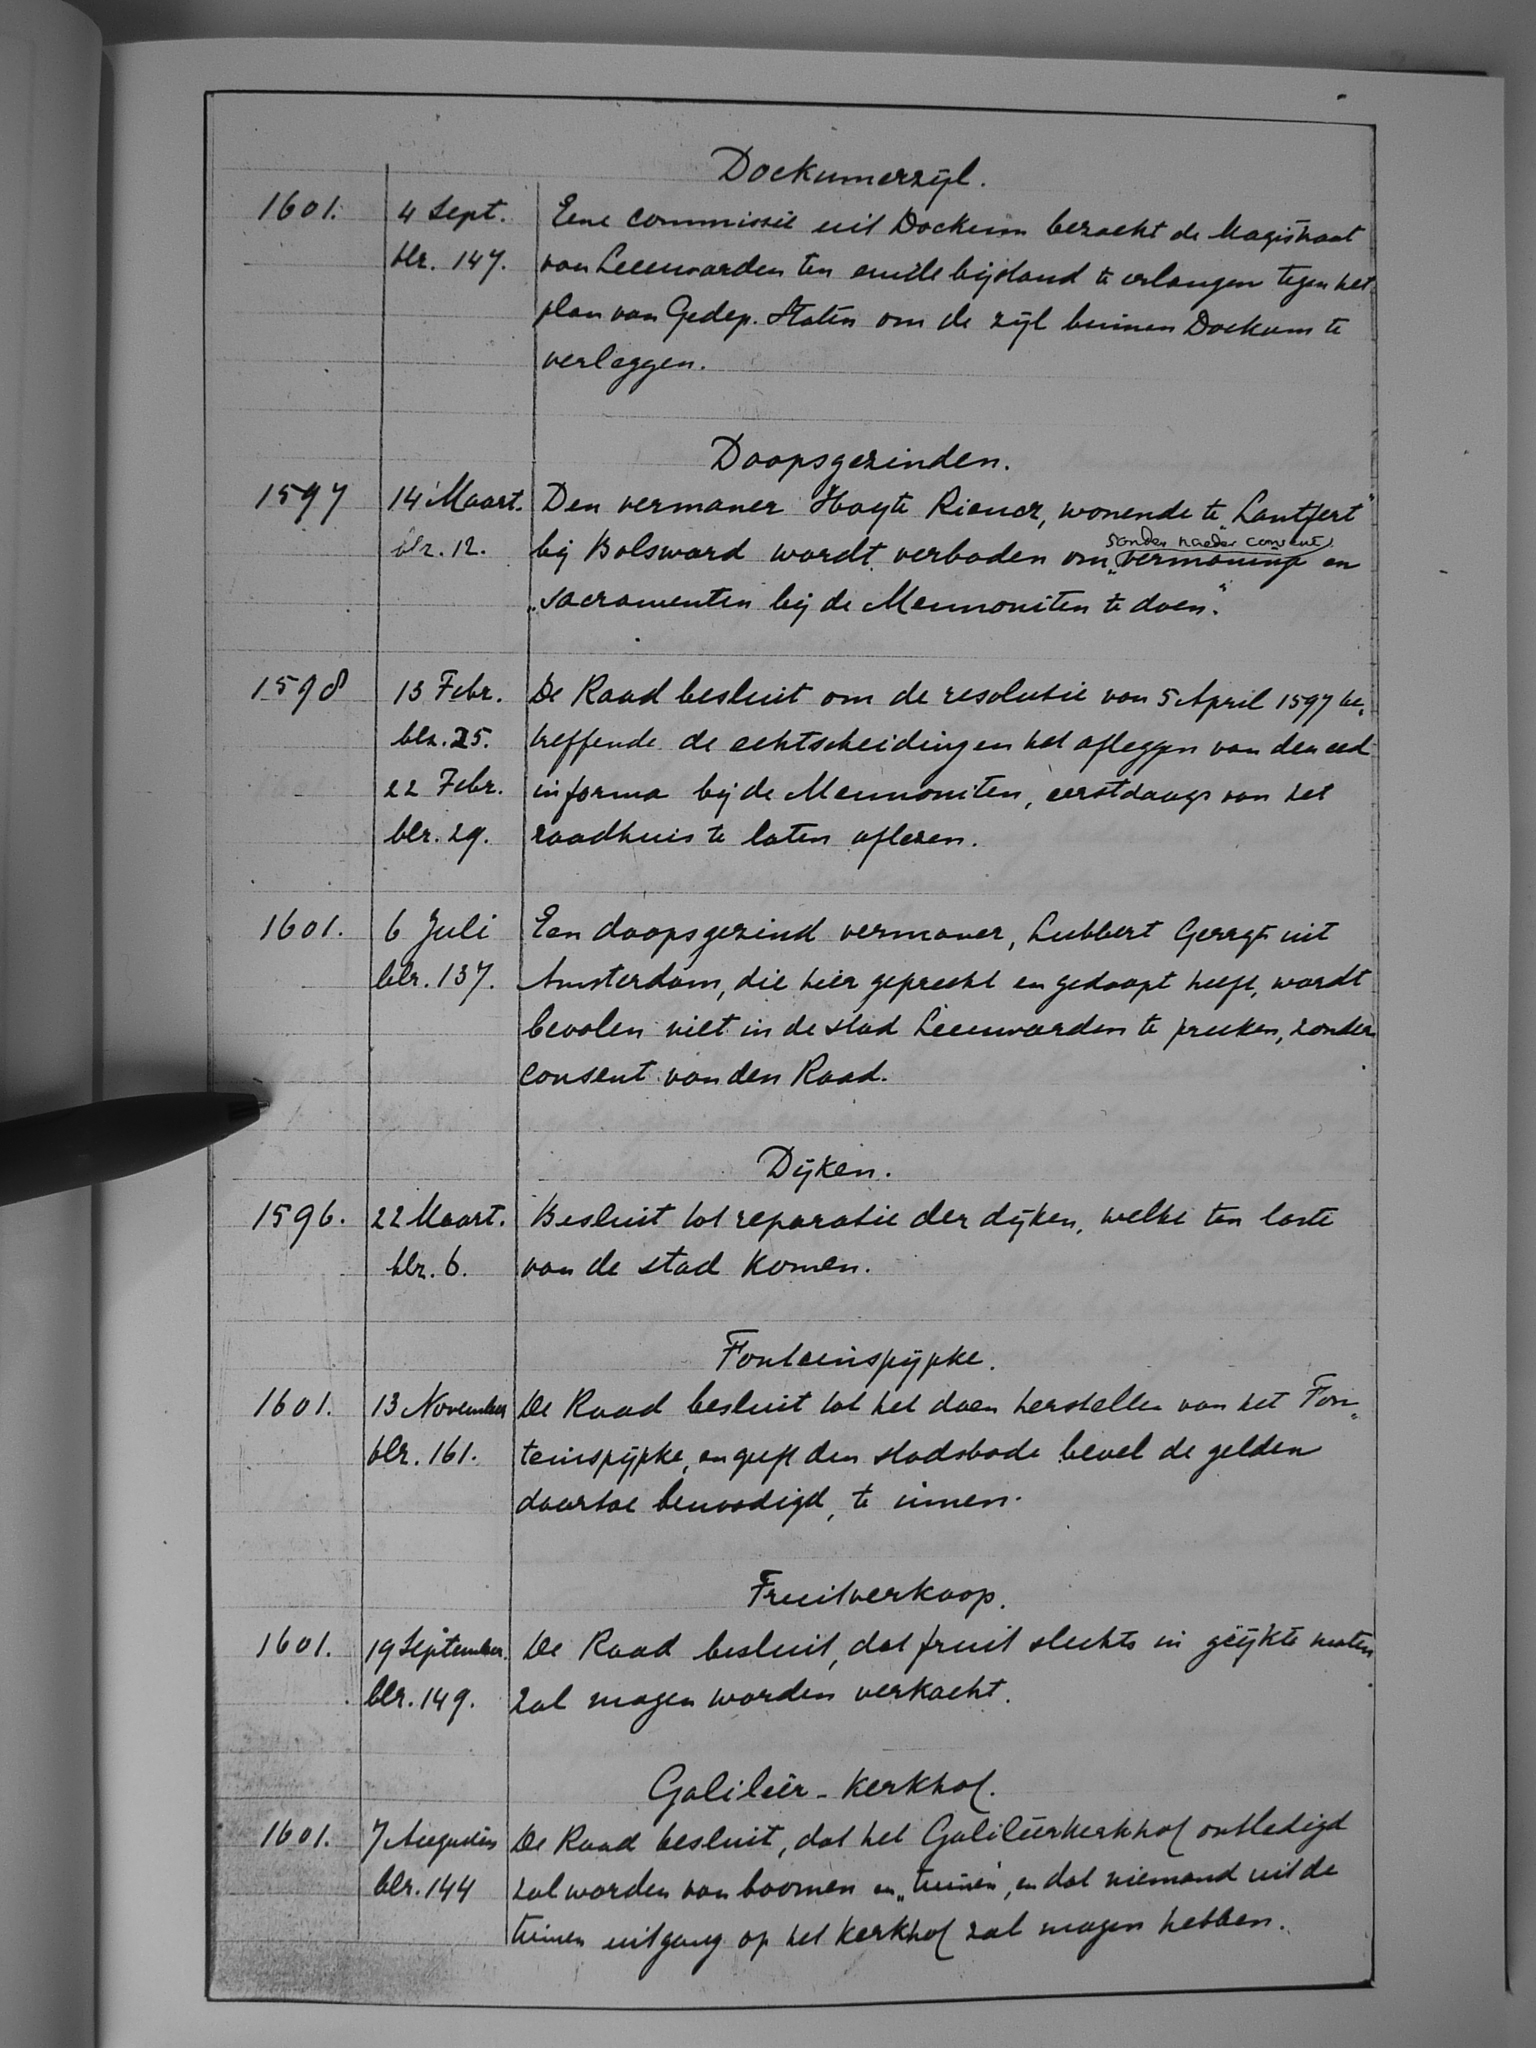 Dockumerzijl.
1601. 4 Sept. Eene commissie uit Dockum bezoekt de Magistraat
blz. 147. van Leeuwarden ten einde bijstand te erlangen tegen het
plan van Gedep. Staten om de zijl binnen Dockum te
verleggen.
Doopsgezinden.
1597 14 Maart. Den vermaner Hayte Riencx, wonende te „Lantfert"
sonder naeder consent
blz. 12. bij Bolsward wordt verboden om „vermaninge en
„sacramenten bij de Mennoniten te doen".
1598 13 Febr. De Raad besluit om de resolutie van 5 April 1597 be„
blz. 25. treffende de echtscheiding en het afleggen van den eed
22 Febr. in forma bij de Mennoniten, eerstdaags van het
blz. 29. raadhuis te laten aflezen.
1601. 6 Juli Een doopsgezind vermaner, Lubbert Gerryts uit
blz. 137. Amsterdam, die hier gepreekt en gedoopt heeft, wordt
bevolen niet in de stad Leeuwarden te preeken, zonder
consent van den Raad.
Dijken.
1596. 22 Maart. Besluit tot reparatie der dijken, welke ten laste
blz. 6. van de stad komen.
Fonteinspijpke.
1601. 13 November De Raad besluit tot het doen herstellen van het Fon„
blz. 161. teinspijpke, en geeft den stadsbode bevel de gelden
daartoe benoodigd, te innen.
Fruitverkoop.
1601. 19 September. De Raad besluit, dat fruit slechts in geijkte maten
blz. 149. zal mogen worden verkocht.
Galileër-kerkhof.
1601. 7 Augustus De Raad besluit, dat het Galileërkerkhof ontledigd
blz. 144 zal worden van boomen en „tuinen", en dat niemand uit de
tuinen uitgang op het kerkhof zal mogen hebben.